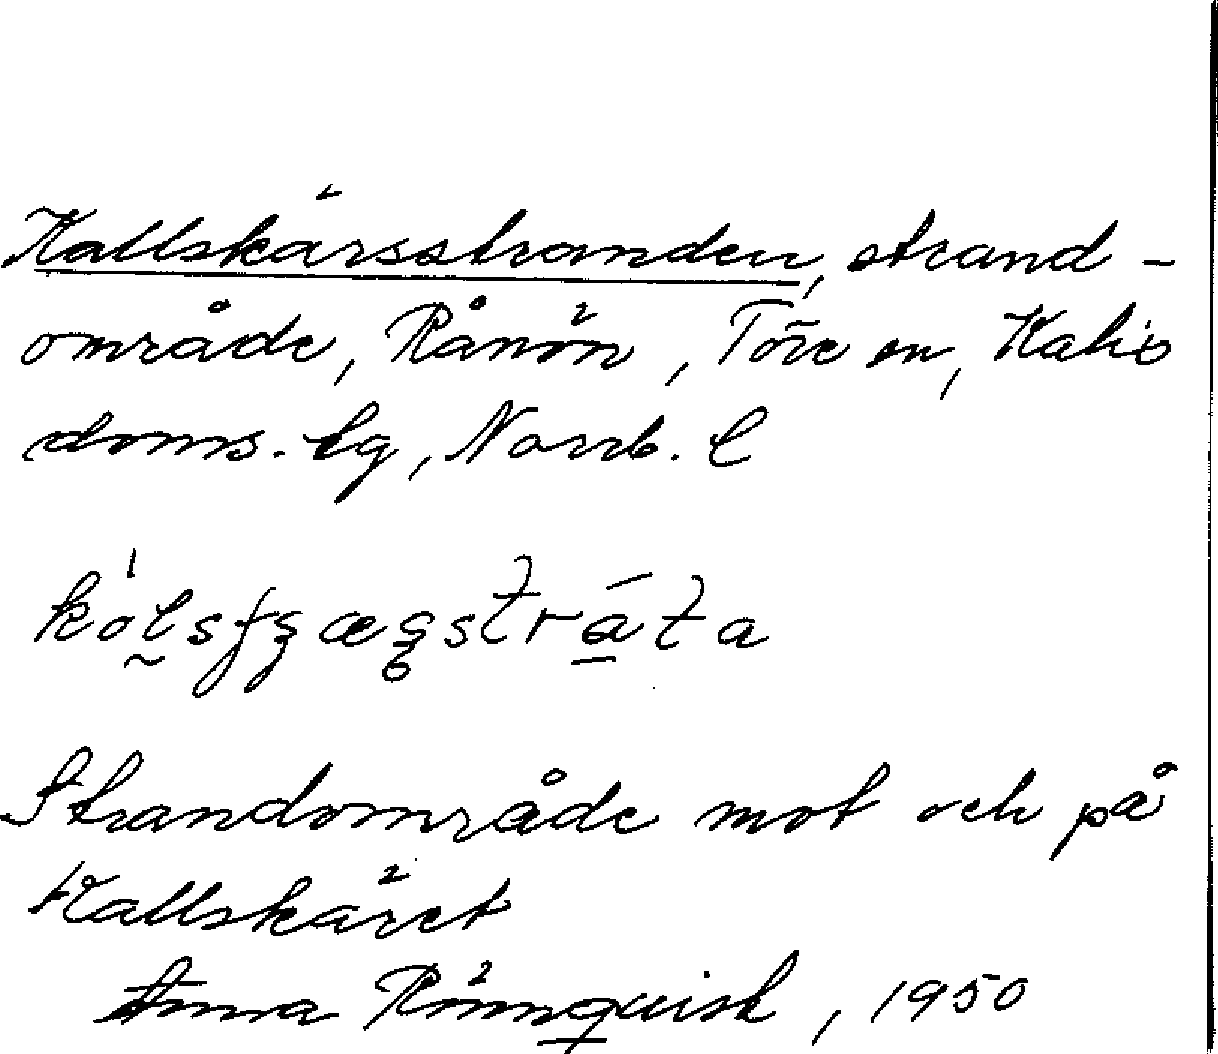 Kallskärsstranden, strand-
område, Rånön, Töre sn, Kalix
doms. lg, Norrb. l
Strandområde mot och på
Kallskäret
Anna Rönnquist, 1950